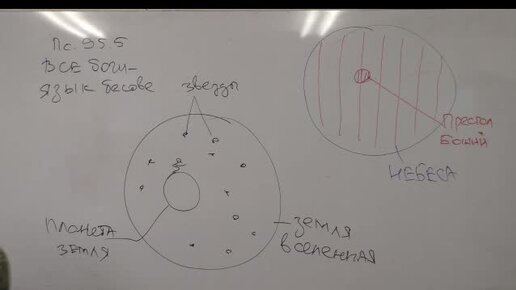 Пс. 95 5
ВСЕ боги-
язык бесове
звезды
Престол
Божий
НЕБЕСА
ПЛАНЕТА
ЗЕМЛЯ
ЗЕМЛЯ
вселенная